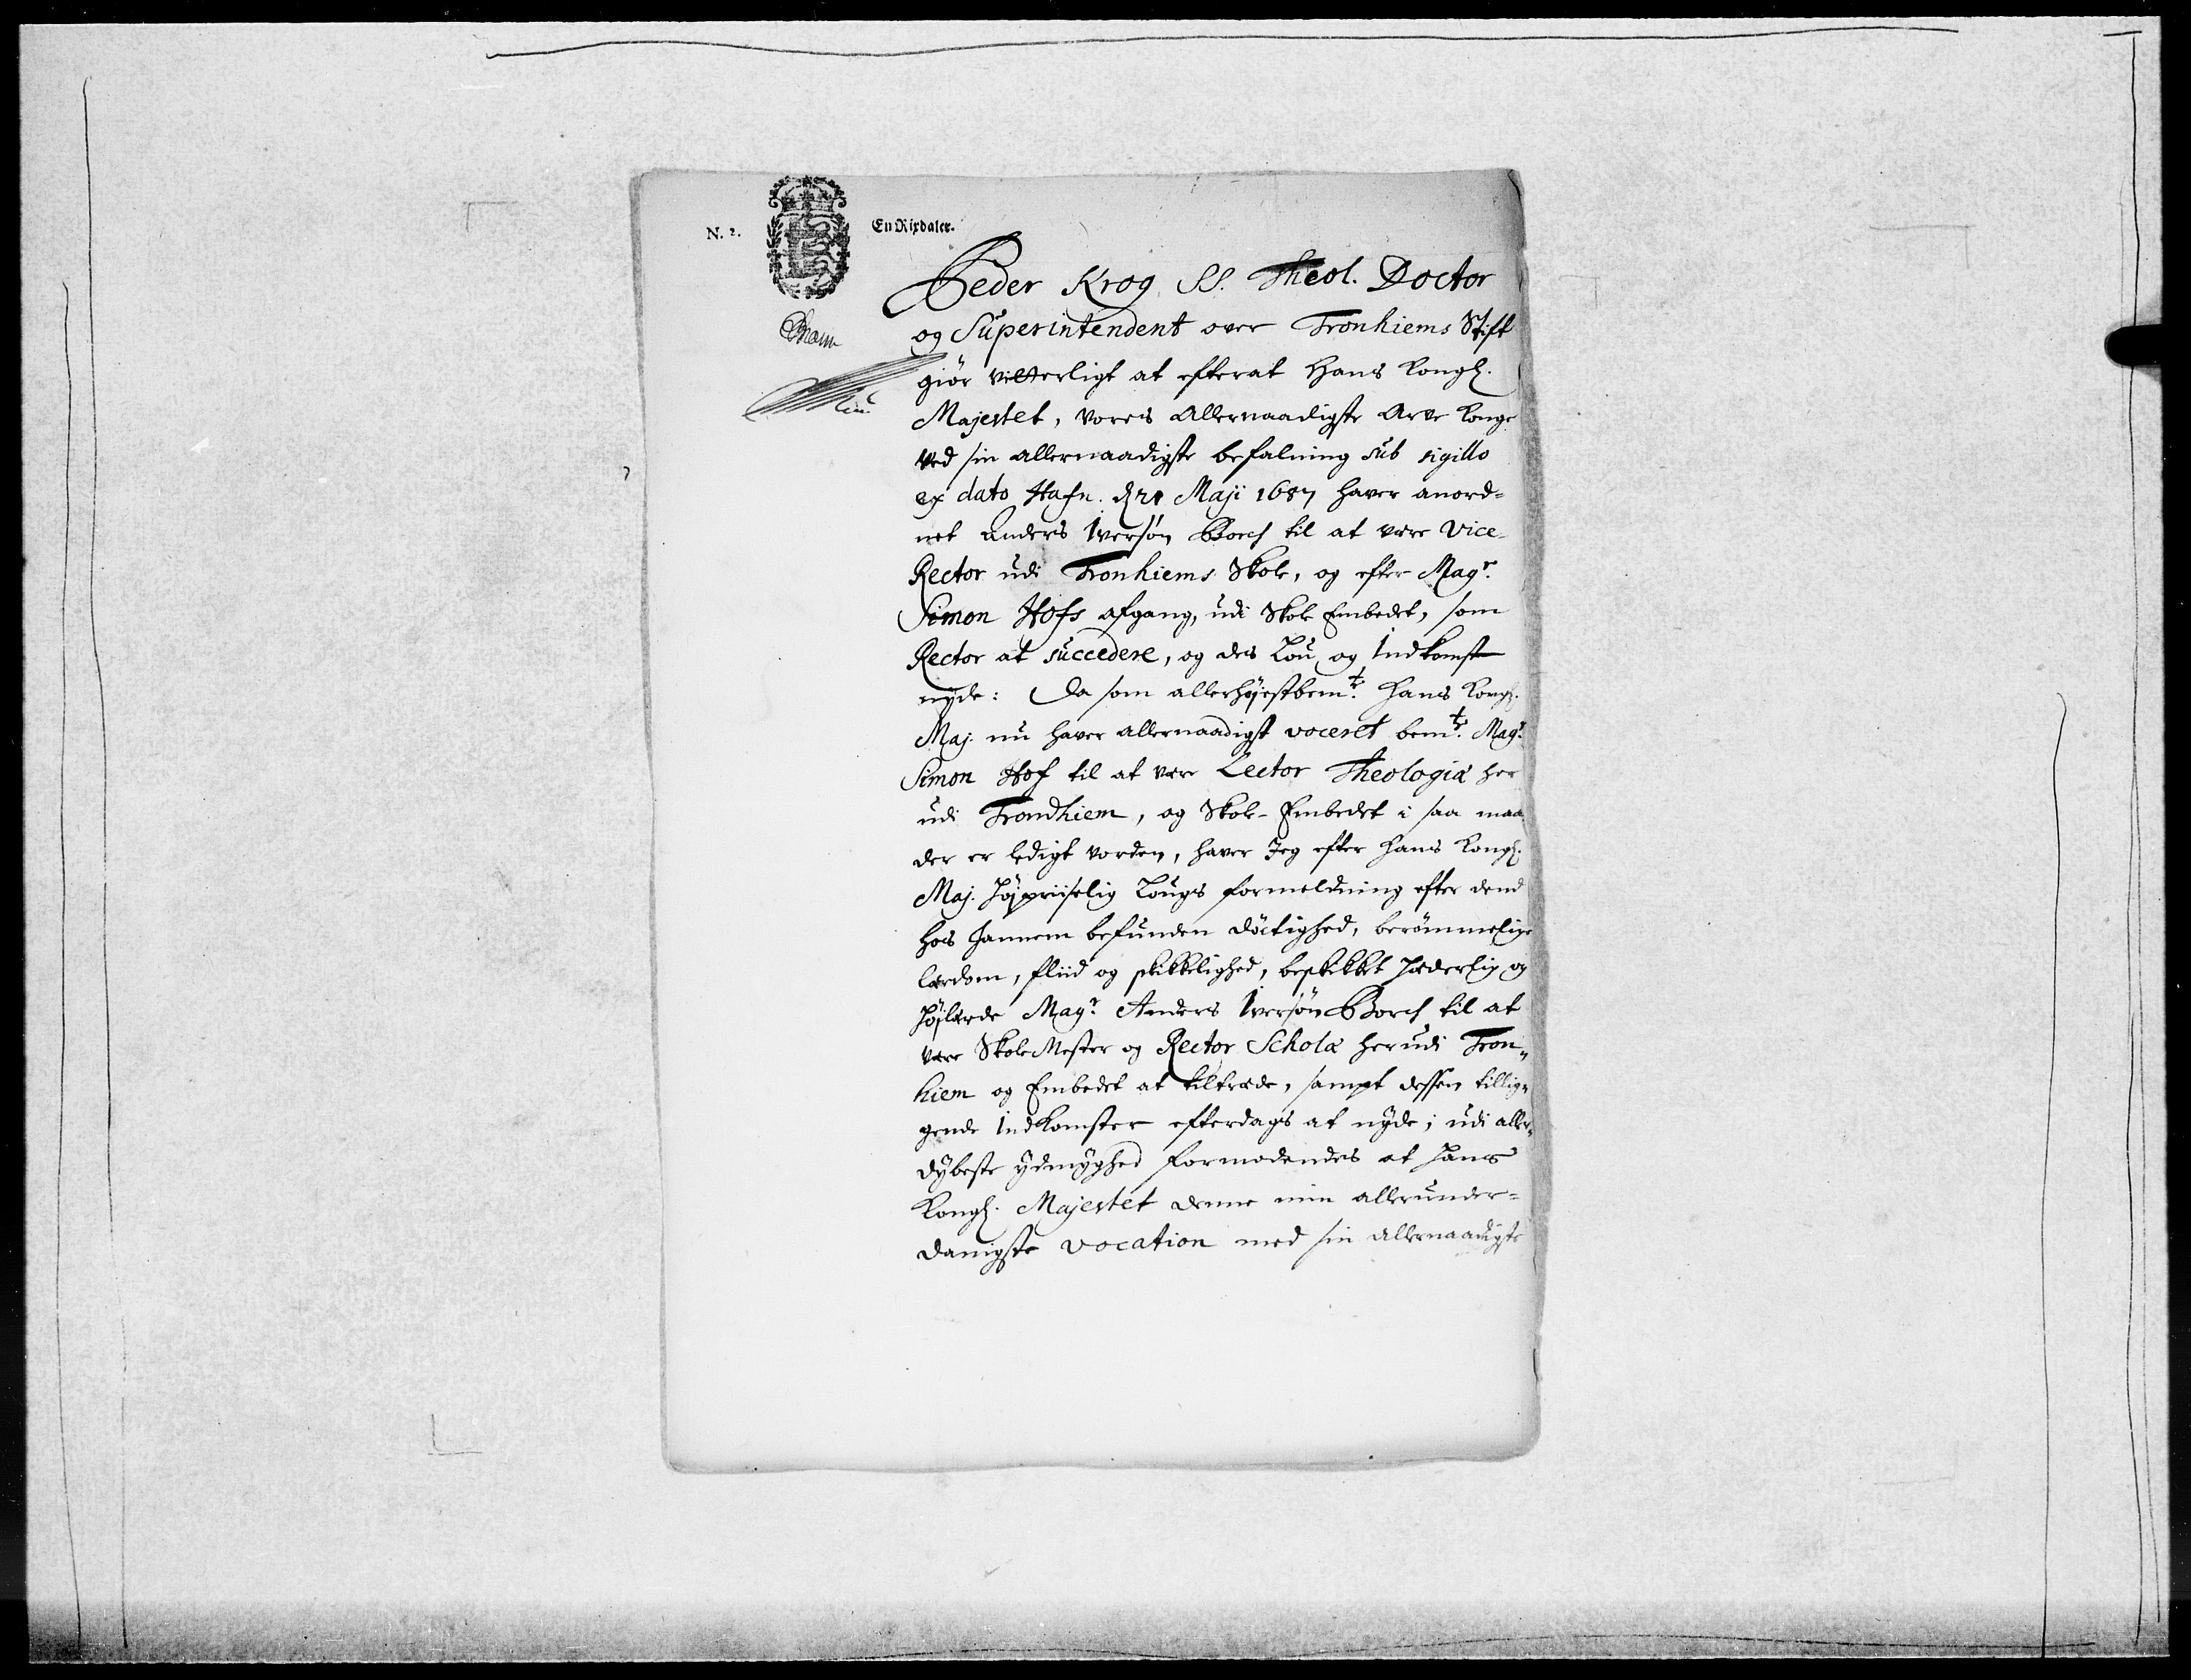 N. 2.
En Rixdaler.
Peder Krog SS. Theol. Doctor
og Superintendent over Tronhiems Stift
giör vitterligt at efterat Hans Kongl.
Majestet, vores Allernaadigste Arve Konge
ved sin allernaadigste befalning sub sigillo
ex dato Hafn. d. 21 Maji 1687 haver anord=
net Anders Iversøn Borch til at være Vice-
Rector udi Tronhiems Skole, og efter Magr.
Simon Hofs afgang, udi Skole Embedet, som
Rector at succedere, og des Løn og Indkomst
nyde: Da som allerhøjestbemte. Hans Kongl.
Maj. nu haver allernaadigst voceret bemte. Magr.
Simon Hof til at være Lector Theologiæ her
udi Trondhiem, og Skole-Embedet i saa maa
der er ledigt vorden, haver Jeg efter Hans Kongl.
Maj. Højpriiselig Lougs formeldning efter dend
hos hannem befunden döctighed, berömmelige
lærdom, fliid og skikkelighed, beskikket Hæderlig og
Højlærde Magr. Anders Iversøn Borch til at
være Skole Mester og Rector Scholæ her udi Tron„
hiem og Embedet at tiltræde, sampt dessen tillig„
gende Indkomster efterdags at nyde; udi aller„
dybeste ydmyghed formodendes at Hans
Kongl. Majestet denne min allerunder=
danigste vocation med sin allernaadigste